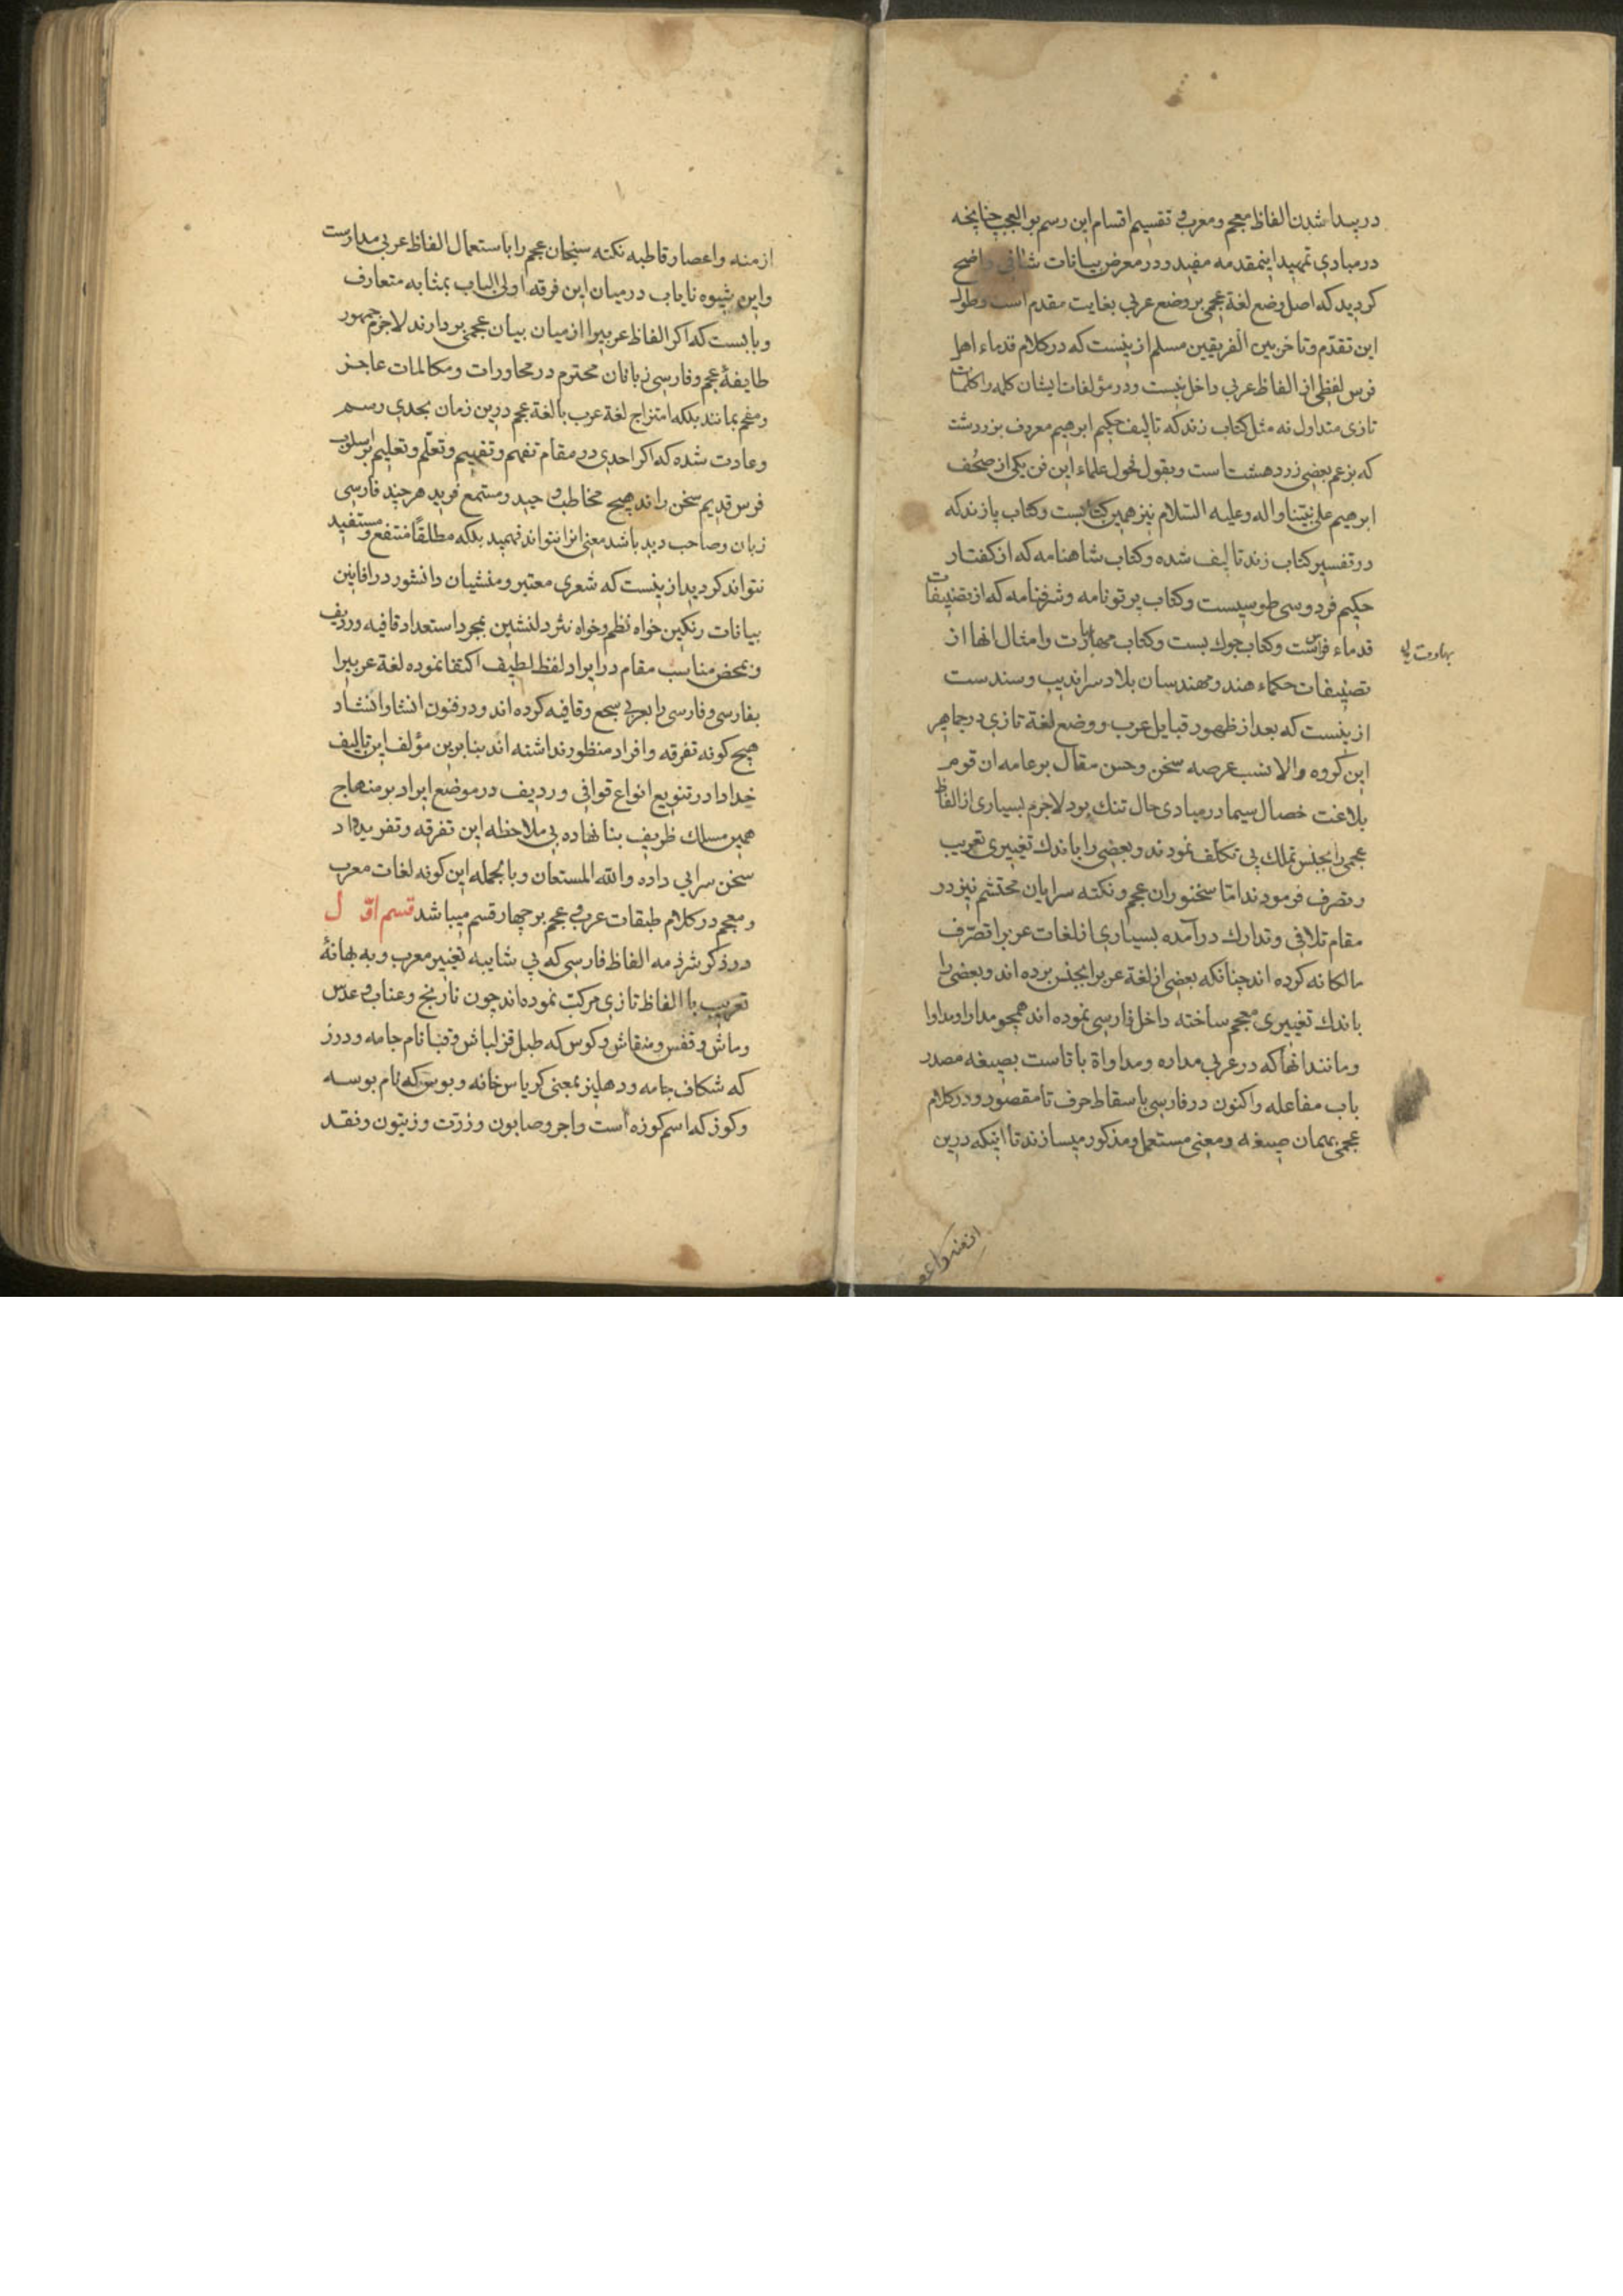 در پیدا شدن الفاظ معجم و معرب و تقسیم اقسام این رسم بوالعجب چنانچه
در مبادی تمهید اینمقدمه مفید و در معرض بیانات شافی واضح
کردید که اصل وضع لغة عجمی بر وضع عربی بغایت مقدم است و طول
این تقدّم و تاخر بین الفریقین مسلم ازینست که در کلام قدماء اهل
فرس لفظی از الفاظ عربی داخل نیست و در مؤلفات ایشان کلمه را کلمات
تازی متداول نه مثل کتاب زند که تالیف حکیم ابرهیم معروف بزردشت
که بزعم بعضی زردهشت است و بقول فحول علماء این فن یکی از صحُف
ابرهیم علی نبیّنا واله وعلیه السّلام نیز همین کتابست و کتاب پازند که
در تفسیر کتاب زند تالیف شده و کتاب شاهنامه که از کفتار
حکیم فردوسی طوسیست و کتاب پرتونامه و شرفنامه که از تصنیفات
قدماء فرس است و کتاب جوك بست و کتاب مهابارت و امثال انها از
تصنیفات حکماء هند و مهندسان بلاد سراندیب و سندست
ازینست که بعد از ظهور قبایل عرب و وضع لغة تازی در جاهر
این کروه والا نسب عرصه سخن و حسن مقال بر عامه ان قوم
بلاغت خصال سیما در مبادی حال تنك بود لاجرم بسیاری از الفاظ
عجمی را بجنس تملك بی تکلّف نمودند و بعضی را باندك تغییری تعریب
و تصرف فرمودند امّا سخنوران عجم و نکته سرایان محتشم نیز در
مقام تلافی و تدارك درآمده بسیاری از لغات عربیرا تصرّف
مالکانه کرده اند چنانکه بعضی از لغة عربیرا بجنس برده اند و بعضی را
باندك تغییری معجم ساخته داخل فارسی نموده اند همچو مدارا و مداوا
و مانند انها که در عربی مداره و مداواة با تاست بصیغه مصدر
باب مفاعله و اکنون در فارسی باسقاط حرف تا مقصور و در کلام
عجمی بهمان صیغه و معنی مستعمل و مذکور میسازند تا اینکه درین
ازمنه واعص
ازمنه و اعصار قاطبه نکته سنجان عجم را باستعمال الفاظ عربی مدارست
و این شیوه نایاب در میان این فرقه اولی الباب بمثابه متعارف
و بابست که اکر الفاظ عربیرا از میان بیان عجمی بردارند لاجرم جمهور
طایفهٔ عجم و فارسی زبانان محترم در محاورات و مکالمات عاجز
و مفحم بمانند بلکه امتزاج لغة عرب با لغة عجم درین زمان بحدی رسم
و عادت شده که اکر احدی در مقام تفهم و تفهیم و تعلّم و تعلیم بر اسلوب
فرس قدیم سخن راند هیچ مخاطب وحید و مستمع فرید هر چند فارسی
زبان و صاحب دید باشد معنی انرا نتواند فهمید بلکه مطلقًا منتفع و مستفید
نتواند کردید ازینست که شعری معتبر و منشیان دانشور در افانین
بیانات رنکین خواه نظم و خواه نثر دلنشین بمجرد استعداد قافیه و ردیف
و بمحض مناسب مقام در ایراد لفظ لطیف اکتفا نموده لغة عربیرا
بفارسی و فارسی را بعربی سجع و قافیه کرده اند و در فنون انشا و انشاد
هیچ کونه تفرقه و افراد منظور نداشته اند بنابرین مؤلف این تالیف
خداداد در تنویع انواع قوافی و ردیف در موضع ایراد بر منهاج
همین مسلك ظریف بنا نهاده بی ملاحظه این تفرقه و تفرید داد
سخن سرایی داده والله المستعان و بالجمله این کونه لغات معرب
و معجم در کلام طبقات عرب و عجم بر چهار قسم میباشد قسم اوّل
در ذکر شرذمه الفاظ فارسی که بی شایبه تغییر معرب و به بهانهٔ
تعریب با الفاظ تازی مرکب نموده اند چون نارنج و عناب و عدس
و ماش و قفس و منقاش و کوس که طبل قزلباش و قبا نام جامه و درز
که شکاف جامه و دهلیز بمعنی کریاس خانه و بوس که نام بوسه
و کوز که اسم کوزه است و اجر و صابون و زرّت و زیتون و نقد